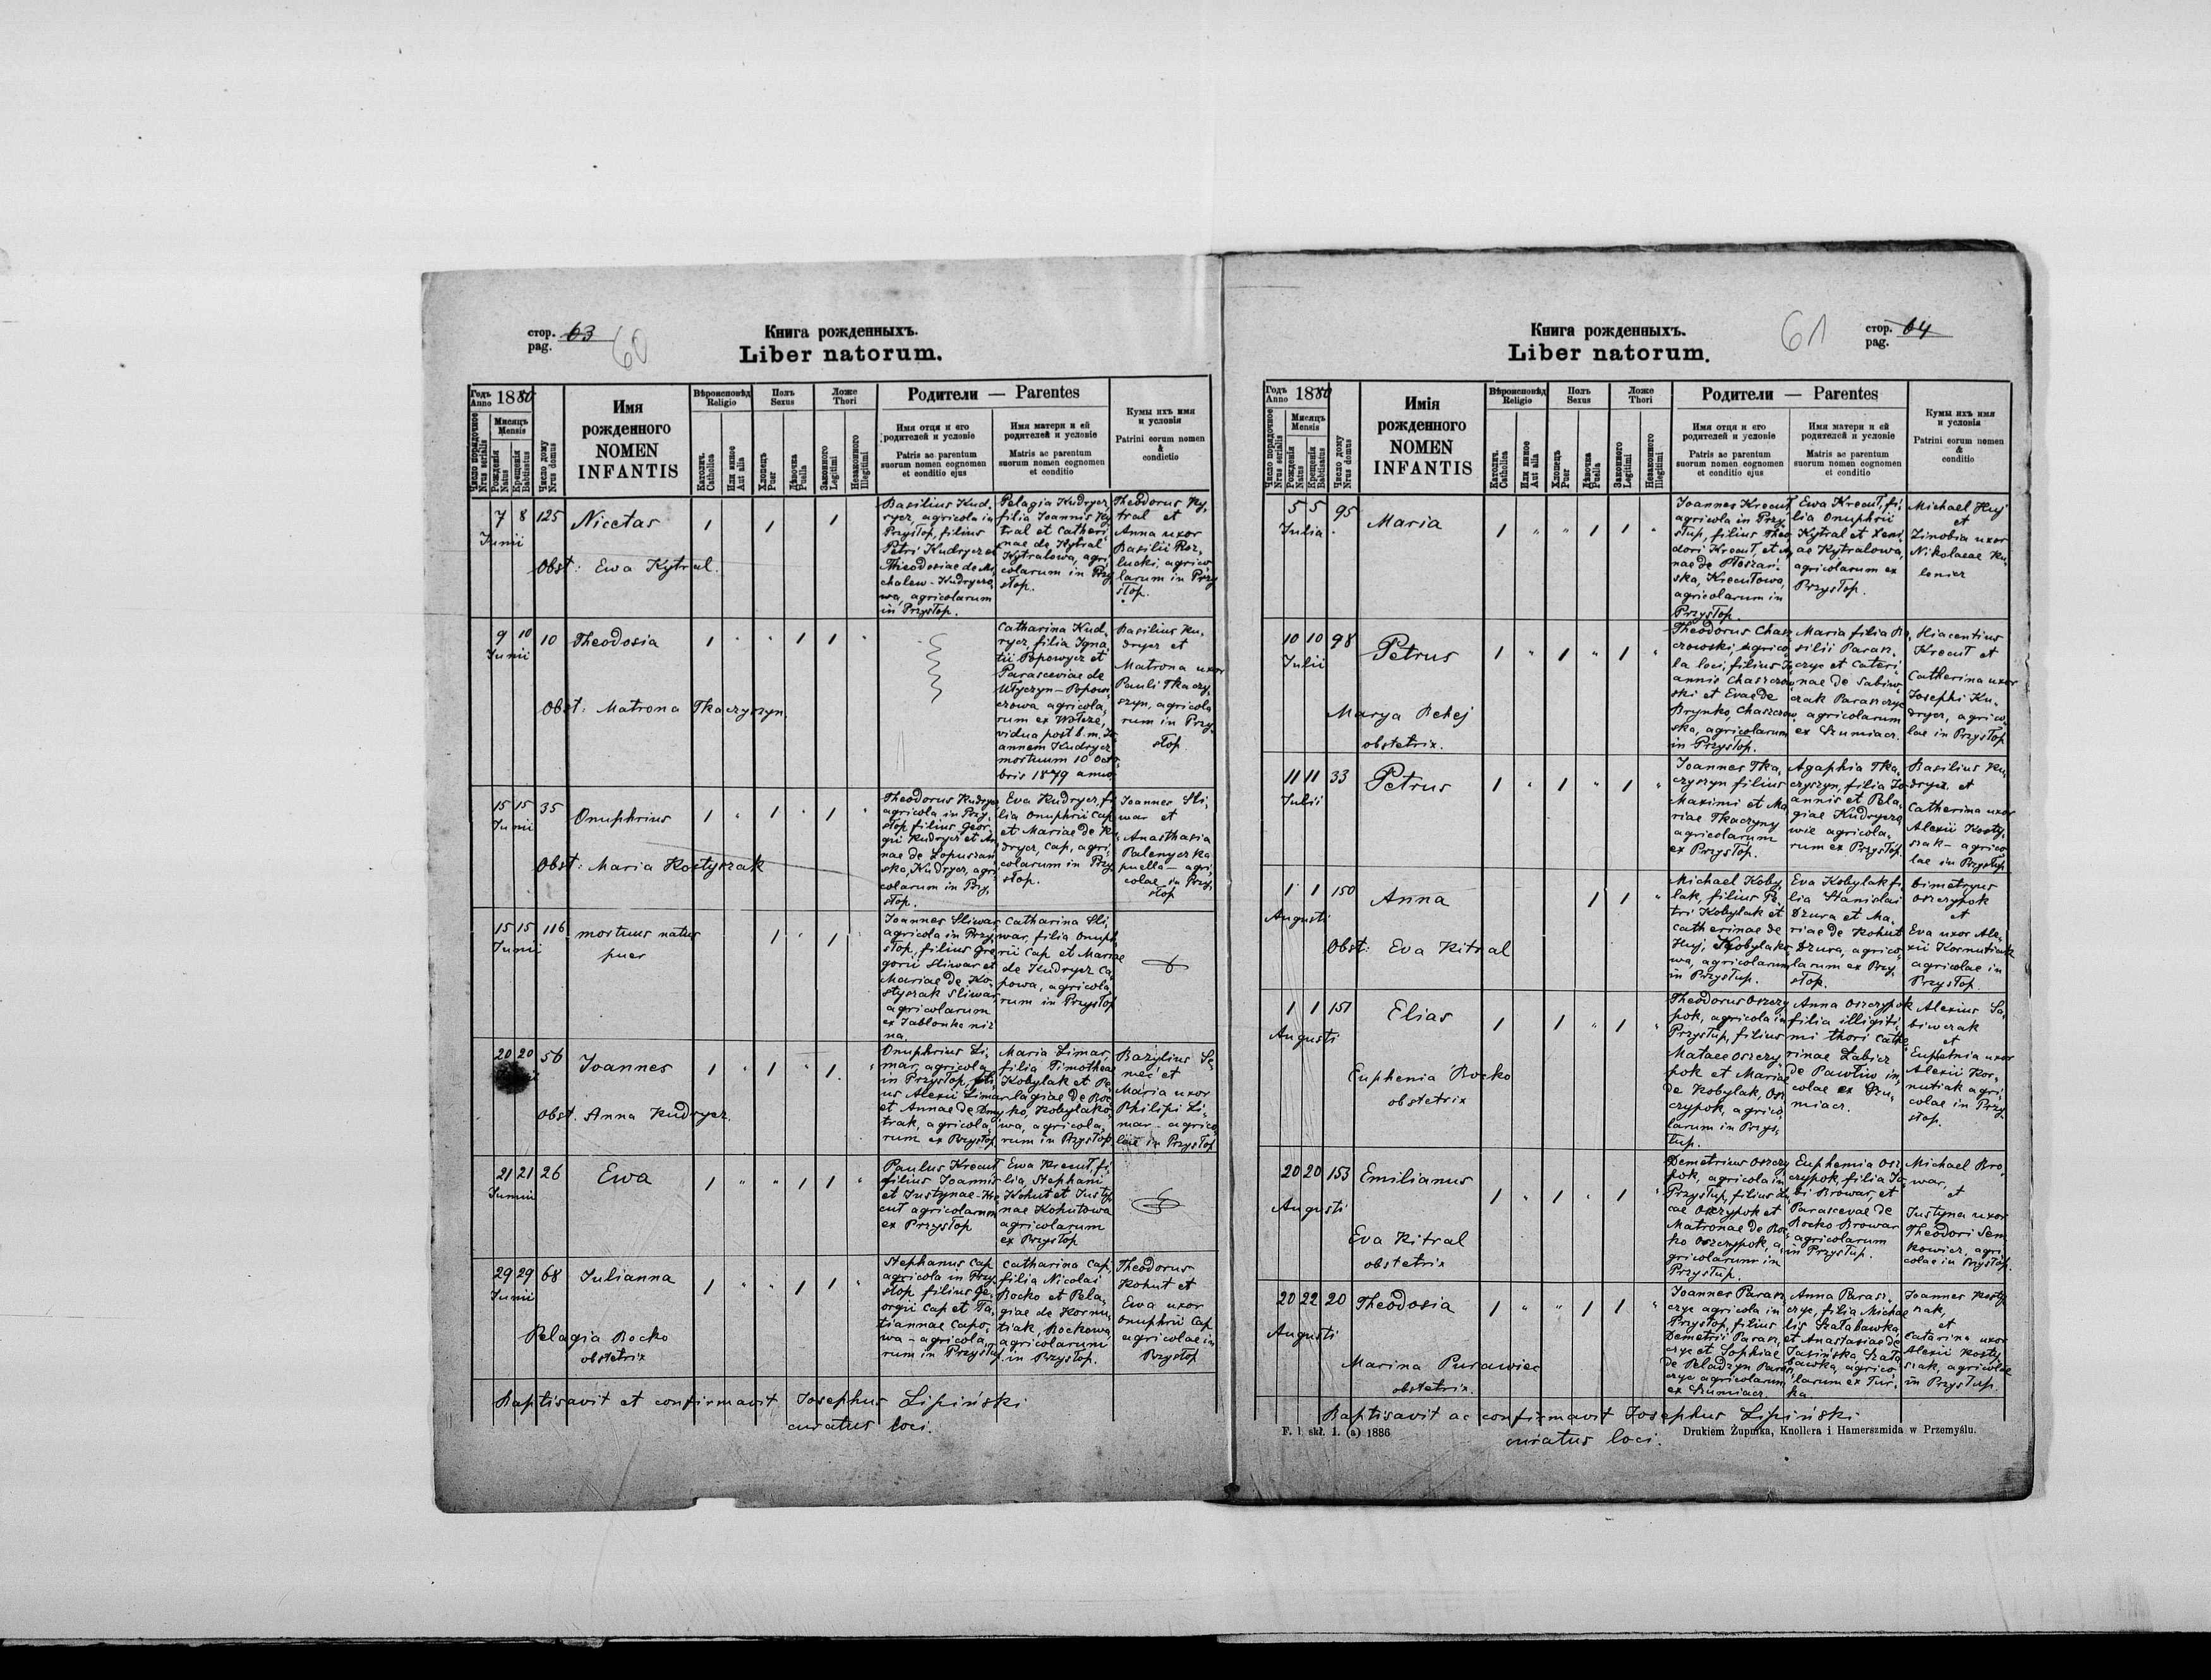 стор. 63
pag.
60
Книга рожденныхъ.
Liber natorum.
Годъ
Anno 1880
Число порядочное
Nrus serialis
Мисяцъ
Mensis
Рожденія
Natus
Крещенія
Babtisatus
Число дому
Nrus domus
Имя
рожденного
NOMEN
INFANTIS
Вѣроисповѣд
Religio
Католич.
Catholica
Или инное
Aut alia
Полъ
Sexus
Хлопецъ
Puer
Дѣвочка
Puella
Ложе
Thori
Законного
Legitimi
Незаконного
Illegitimi
Родители — Parentes
Имя отця и его
родителей и условіе
Patris ac parentum
suorum nomen cognomen
et conditio ejus
Имя матери и ей
родителей и условіе
Matris ac parentum
suorum nomen cognomen
et conditio
Кумы ихъ имя
и условія
Patrini eorum nomen
&
condictio
7 8 125 Nicetas
Junii
Obst: Ewa Kytral.
Basilius Kud,
rycz, agricola in
Przysłop, filius
Petri Kudrycz et
Theodosiae de Mi
chalew-Kudrycza
wa, agricolarum
in Przysłop.
Pelagia Kudrycz,
filia Joannis Ky
tral et Catheri
nae de Kytral
Kytralowa, agri
colarum in Przy
słop.
Theodorus Ky,
tral et
Anna uxor
Basilii Roz,
lucki, agrico
larum in Przy
słop.
9 10 10 Theodosia
Junii
Obst: Matrona Tkaczyszyn
Catharina Kud,
rycz, filia Igna
tii Popowycz et
Parasceviae de
Utyczyn-Popow
czowa agricola,
rum ex Wołcze,
vidua post b.m. Jo
annem Kudrycz
mortuum 10 Octo
bris 1879 anno
Basilius Ku,
drycz et
Matrona uxor
Pauli Tkaczy,
szyn, agricola
rum in Przy
słop
15 15 35 Onuphrius
Junii
Obst: Maria Kostyszak
Theodorus Kudrycz
agricola in Przy,
słop filius Geor,
gii Kudrycz et An
nae de Łopuszań
ska, Kudrycz, agri
colarum in Przy,
słop.
Eva Kudrycz, fi
lia Onuphrii Cap
et Mariae de Ku
drycz, Cap, agri,
colarum in Przy
słop.
Joannes Sli,
war et
Anasthasia
Palenyczka
puella - agri
colae in Przy
słop
15 15 116 mortuus natus
Junii puer
Joannes Sliwar
agricola in Przy
słop, filius Gre
gorii Sliwar et
Mariae de Ko
styszak Sliwar
agricolarum
ex Jablonka niz
na.
Catharina Sli,
war, filia Onuph
rii Cap et Mariae
de Kudrycz Ca
powa, agricola,
rum in Przysłop
20 20 56 Joannes
Obst. Anna Kudrycz.
Onuphrius Li,
mar, agricola
in Przysłop, fili
us Alexii Limar
et Annae de Dmy
trak, agricola,
rum ex Przysłop
Maria Limar,
filia Timotheae
Kobylak et Pe
lagiae de Roc
ko, Kobylako,
wa, agricola,
rum in Przysłop.
Bazylius Se,
mec et
Maria uxor
Philipi Li,
mar - agrico,
lae in Przysłop
21 21 26 Ewa
Junii
Paulus Krecuł,
filius Joannis
et Justynae-Kre
cuł agricolarum
ex Przysłop
Ewa Krecuł, fi,
lia, Stephani
Kohut et Justy
nae Kohutowa
agricolarum
ex Przysłop
29 29 68 Julianna
Junii
Pelagia Rocko
obstetrix
Stephanus Cap
agricola in Przy
słop filius Ge,
orgii Cap et Ta,
tiannae Capo,
wa - agricola,
rum in Przysłup
Catharina Cap,
filia Nicolai
Rocko et Pela,
giae de Kornu,
tiak, Rockowa,
agricolarum
in Przysłop.
Theodorus
Kohut et
Ewa uxor
Onuphrii Cap
agricolae in
Przysłop
Baptisavit et confirmavit Josephus Lipiński
curatus loci.
Книга рожденныхъ.
Liber natorum.
61
стор. 64
pag.
Годъ
Anno 1880
Число порядочное
Nrus serialis
Мисяцъ
Mensis
Рожденія
Natus
Крещенія
Babtisatus
Число дому
Nrus domus
Имія
рожденного
NOMEN
INFANTIS
Вѣроисповѣд
Religio
Католич.
Catholica
Или инное
Aut alia
Полъ
Sexus
Хлопецъ
Puer
Дѣвочка
Puella
Ложе
Thori
Законного
Legitimi
Незаконного
Illegitimi
Родители — Parentes
Имя отця и его
родителей и условіе
Patris ac parentum
suorum nomen cognomen
et conditio ejus
Имя матери и ей
родителей и условіе
Matris ac parentum
suorum nomen cognomen
et conditio
Кумы ихъ имя
и условія
Patrini eorum nomen
&
conditio
5 5 95 Maria
Julia
Joannes Krecuł,
agricola in Przy,
słup, filius Theo
dori Krecuł, et An
nae de Płoszań
ska, Krecułowa,
agricolarum in
Przysłop.
Ewa Krecuł, fi,
lia Onuphrii
Kytral et Xeni
ae Kytralowa,
agricolarum ex
Przysłop.
Michael Huj
et
Zinobia uxor
Nikolaae Ku
lenicz
10 10 98 Petrus
Julii
Marya Behej
obstetrix.
Theodorus Chasz
czowski, agrico
la loci, filius Jo
annis Chaszczow
ski et Evae de
Brynko, Chaszczow
ska, agricolarum
in Przysłop.
Maria filia Ba,
silii Paraz.
czyc et Cateri
nae de Sabiw,
czak Paraszczyc
agricolarum
ex Szumiacz.
Hiacentius
Krecuł et
Catherina uxor
Josephi Ku,
drycz, agrico
lae in Przysłop
11 11 33 Petrus
Julii
Joannes Tka,
czyszyn filius
Maximi et Ma
riae Tkaczyny
agricolarum
ex Przysłop.
Agaphia Tka,
czyszyn, filia Jo
annis et Pela,
giae Kudrycze
wie agricola,
rum ex Przysłop
Basilius Ku,
drycz et
Catherina uxor
Alexii Kosty,
szak - agrico
lae in Przysłup
1 1 150 Anna
Augusti
Obst: Eva Kitral
Michael Koby,
lak, filius Pe,
tri Kobylak et
Catherinae de
Huj, Kobylako,
wa, agricolarum
in Przysłup.
Eva Kobylak fi,
lia Stanislai
Dzura et Ma,
riae de Kohut
Dzura, agrico,
larum ex Przy,
słop.
Dimetryus
Oszczypok
et
Eva uxor Ale,
xii Kornutiak
agricolae in
Przysłop
1 1 151 Elias
Augusti
Euphenia Rocko
obstetrix
Theodorus Oszczy
pok, agricola in
Przysłup, filius
Mataee Oszczy
pok et Mariae
de Kobylak, Osz
czypok, agrico,
larum in Przys,
łup.
Anna Oszczypok
filia illigiti,
mi thori Cathe
rinae Łabicz
de Pawłiw in,
colae ex Szu,
miacz.
Alexius Sa,
biwczak
et
Euphemia uxor
Alexii Kor,
nutiak agri,
colae in Przy
słop.
20 20 153 Emilianus
Augusti
Eva Kitral
obstetrix
Demetrius Oszczy
pok, agricola in
Przysłup, filius Lu
cae Oszczypok et
Matronae de Roc
ko Oszczypok, a,
gricolarum in
Przysłup.
Euphemia Osz
czypok, filia Ja
ki Browar, et
Parascevae de
Rocko Browar
agricolarum
in Przysłup.
Michael Bro,
war,
et
Justyna uxor
Theodori Sen
kowicz, agri
colae in Przysłop.
20 22 20 Theodosia
Augusti
Marina Purawiec
obstetrix.
Joannes Parasz
czyc agricola in
Przysłop, filius
Demetrii Parasz
czyc et Sophiae
de Peladzyn Parasz
czyc agricolarum
ex Szumiacz.
Anna Parasz,
czyc, filia Michae
lis Szałabawka
et Anastasiae de
Jasińska, Szała
bawka, agrico
larum ex Tur,
ka.
Joannes Kosty
szak,
et
Catarina uxor
Alexii Kosty
szak, agricolae
in Przysłup.
Baptisavit ac confirmavit Josephus Lipiński
curatus loci.
F. l skł. 1. (a) 1886
Drukiem Żupnika, Knollera i Hamerszmida w Przemyślu.